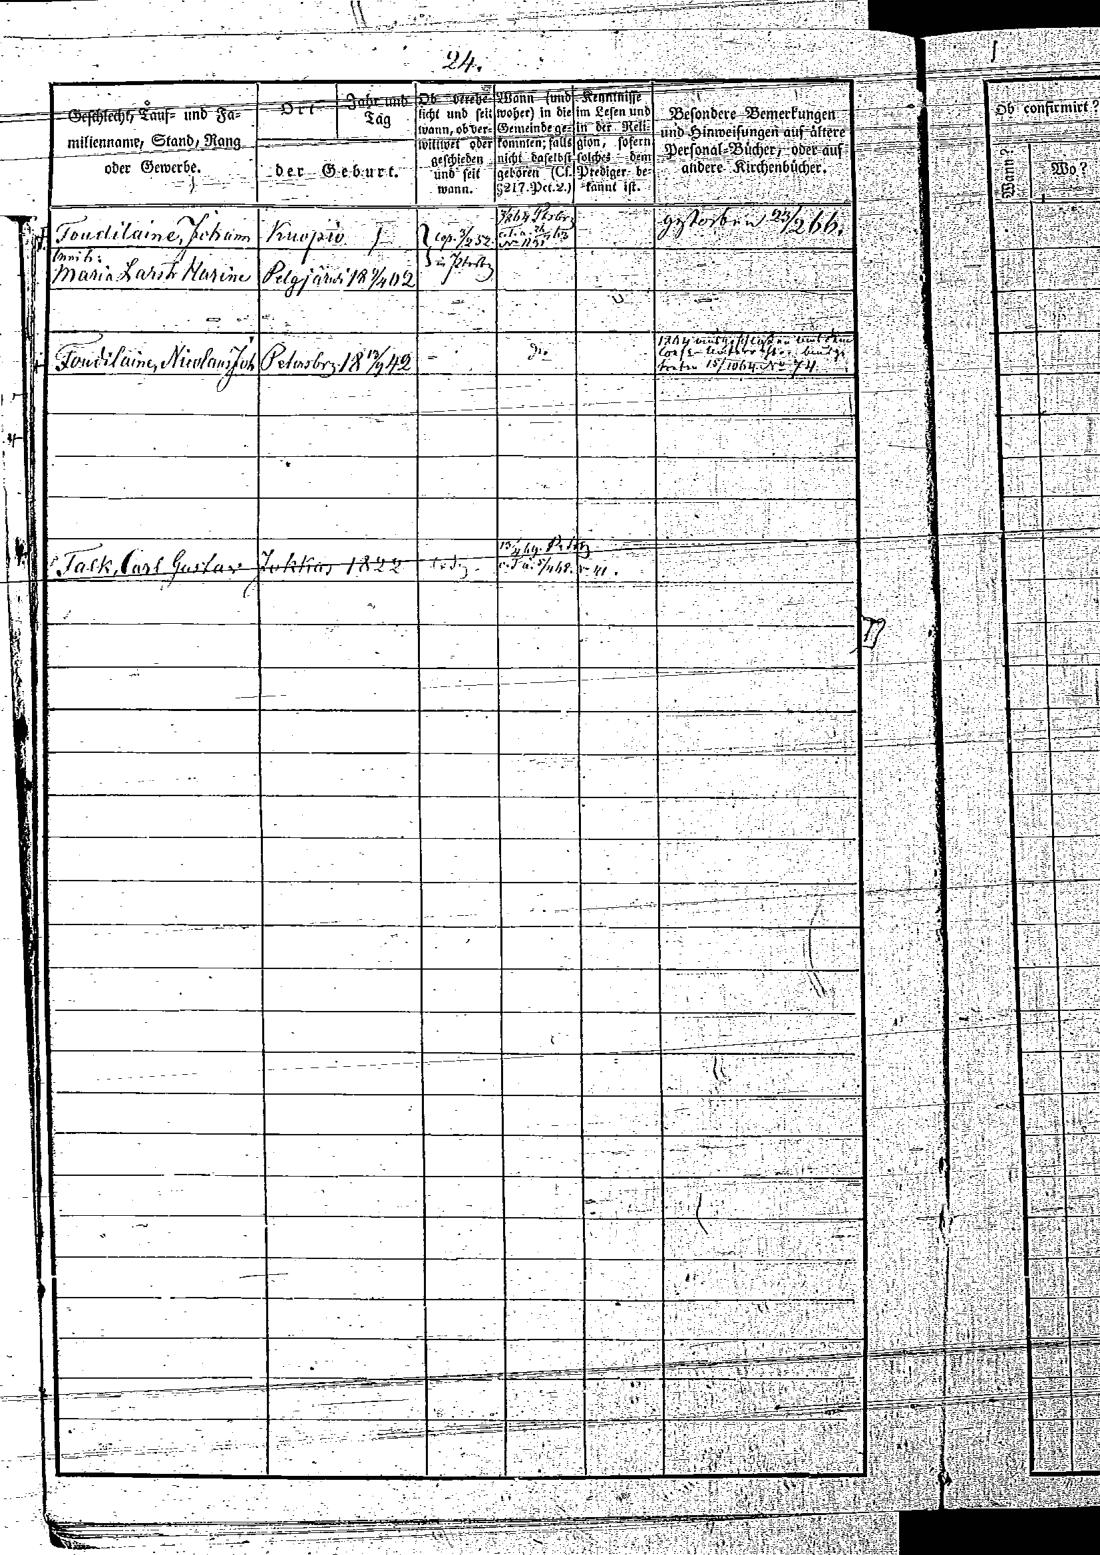 24.
Geschlecht, Tauf- und Fa-
milienname, Stand, Rang
oder Gewerbe.
Ort
Jahr und
Tag
der Geburt.
Ob verehe-
licht und seit
wann, ob ver-
wittwet oder
geschieden
und seit
wann.
Wann (und
woher) in die
Gemeinde ge-
kommen; falls
nicht daselbst
geboren (Cf.
§217. Pct. 2.)
Kenntnisse
im Lesen und
in der Reli-
gion, sofern
solches dem
Prediger be-
kannt ist.
Besondere Bemerkungen
und Hinweisungen auf ältere
Personal-Bücher, oder auf
andere Kirchenbücher.
Ob confirmirt?
Wann?
Wo?
Toudilaine, Johann Kuopio cop. 3/2 52. gestorben 23/2 66.
Maria Larsdr Harine Pelgjärwi 18 7/4 02
Toudilaine, Nicolaus Joh Petersbrg. 18 13/9 42 do.
15/10 64. No 74.
Falk, Carl Gustav Jokkas 1822 ledig.